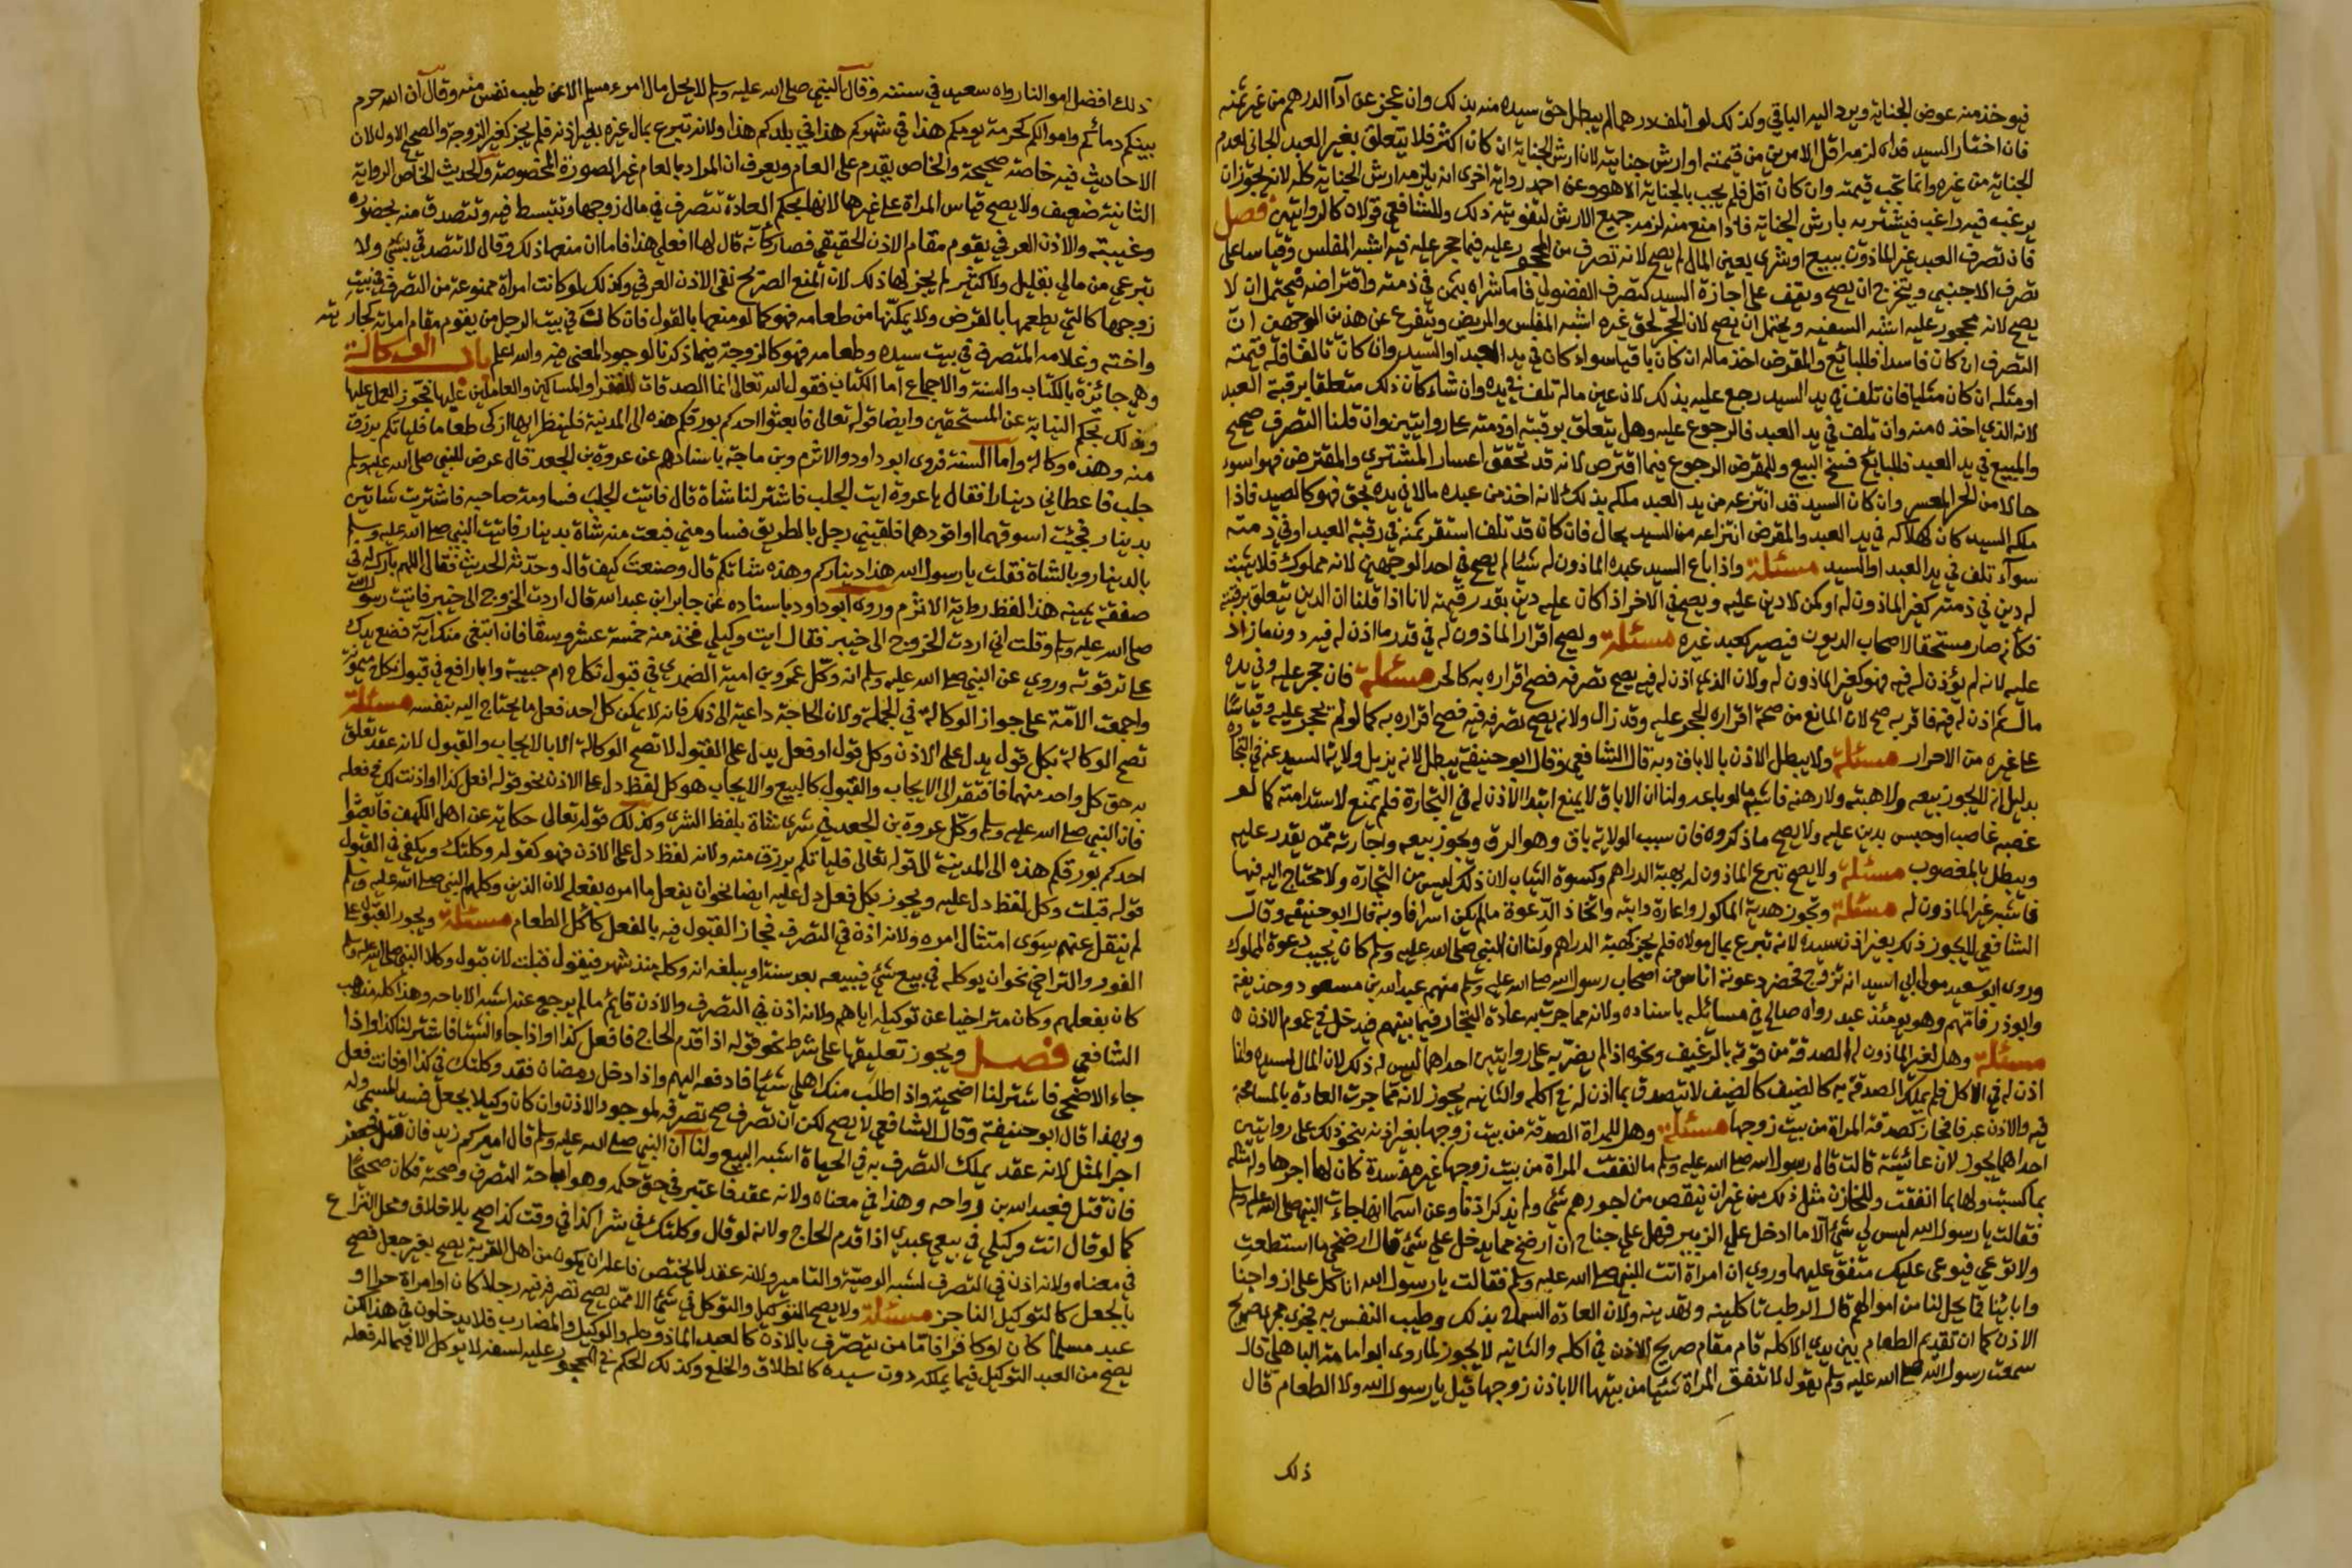 فيوخذ منه عوض الجناية ويرد اليه الباقي وكذلك لو اتلف درهما لم يبطل حق سيده منه بذلك وان عجز عن ادآ الدرهم من غير ثمنه
فان اختار السيد فداه لزمه اقل الامرين من قيمته او ارش جنايته لان ارش الجناية ان كان اكثر فلا يتعلق بغير العبد الجاني لعدم
الجناية من غيره وانما تجب قيمته وان كان اقل فلم يجب بالجناية الا هو وعن احمد رواية اخرى انه يلزمه ارش الجناية كله لانه يجوز ان
يرغب فيه راغب فيشتريه بارش الجناية فاذا منع منه لزمه جميع الارش لتفويته ذلك وللشافعي قولان كالروايتين فصل
فان تصرف العبد غير الماذون ببيع او شرى بعين المال لم يصح لانه تصرف من المحجور عليه فيما حجر عليه فيه اشبه المفلس وقياسا على
تصرف الاجنبي ويتخرج ان يصح ويقف على اجازة السيد كتصرف الفضولي فاما شراه بثمن في ذمته واقتراضه فيحتمل ان لا
يصح لانه محجور عليه اشبه السفيه ويحتمل ان يصح لان الحجر لحق غيره اشبه المفلس والمريض ويتفرع عن هذين الوجهين ان
التصرف ان كان فاسدا فللبائع والمقرض اخذ ماله ان كان باقيا سواء كان في يد العبد او السيد وان كان تالفا فله قيمته
او مثله ان كان مثليا فان تلف في يد السيد رجع عليه بذلك لان عين ماله تلف في يده وان شاء كان ذلك متعلقا برقبة العبد
لانه الذي اخذه منه وان تلف في يد العبد فالرجوع عليه وهل يتعلق برقبته او ذمته على روايتين وان قلنا التصرف صحيح
والمبيع في يد العبد فللبائع فسخ البيع وللمقرض الرجوع فيما اقترض لانه قد تحقق اعسار المشتري والمقترض فهو اسوء
حالا من الحر المعسر وان كان السيد قد انتزعه من يد العبد ملكه بذلك لانه اخذ من عبده مالا في يده بحق فهو كالصيد فاذا
ملكه السيد كان كهلاكه في يد العبد والمقرض انتزاعه من السيد بحال فان كان قد تلف استقر ثمنه في رقبة العبد او في ذمته
سوآء تلف في يد العبد او السيد مسئلة واذا باع السيد عبده الماذون له شيئا لم يصح في احد الوجهين لانه مملوكه فلا يثبت
له دين في ذمته كغير الماذون له او كمن لا دين عليه ويصح في الاخر اذا كان عليه دين بقدر قيمته لانا اذا قلنا ان الدين يتعلق برقبته
فكانه صار مستحقا لاصحاب الديون فيصير كعبد غيره مسئلة ويصح اقرار الماذون له في قدر ما اذن له فيه دون ما زاد
عليه لانه لم يؤذن له فيه فهو كغير الماذون له ولان الذي اذن له فيه يصح تصرفه فصح اقراره به كالحر مسئلة فان حجر عليه وفي يده
مال ثم اذن له فيه فاقر به صح لان المانع من صحة اقراره الحجر عليه وقد زال ولانه يصح تصرفه فيه فصح اقراره به كما لو لم يحجر عليه وقياسا
على غيره من الاحرار مسئلة ولا يبطل الاذن بالاباق وبه قال الشافعي وقال ابو حنيفة يبطل لانه يزيل ولاية السيد عنه في التجارة
بدليل انه لا يجوز بيعه ولا هبته ولا رهنه فاشبه ما لو باعه ولنا ان الاباق لا يمنع ابتدا الاذن له في التجارة فلم يمنع لاستدامته كما لو
غصبه غاصب او حبس بدين عليه ولا يصح ما ذكروه فان سبب الولاية باق وهو الرق ويجوز بيعه واجارته ممن يقدر عليه
ويبطل بالمغصوب مسئلة ولا يصح تبرع الماذون له بهبة الدراهم وكسوة الثياب لان ذلك ليس من التجارة ولا محتاج اليه فيها
فاشبه غير الماذون له مسئلة وتجوز هدية الماكول واعارة دابته واتخاذ الدعوة ما لم يكن اسرافا وبه قال ابو حنيفة وقال
الشافعي لا يجوز ذلك بغير اذن سيده لانه تبرع بمال مولاه فلم يجز كهبة الدراهم ولنا ان النبي صلى الله عليه وسلم كان يجيب دعوة المملوك
وروى ابو سعيد مولى ابي اسيد انه تزوج فحضر دعوته اناس من اصحاب رسول الله صلى الله عليه وسلم منهم عبد الله بن مسعود وحذيفة
وابو ذر فامهم وهو يومئذ عبد رواه صالح في مسائله باسناده ولانه مما جرت به عادة التجار فيما بينهم فيدخل في عموم الاذن
مسئلة وهل لغير الماذون له الصدقة من قوته بالرغيف ونحوه اذا لم يضر به على روايتين احداهما ليس له ذلك لان المال لسيده وانما
اذن له في الاكل فلم يملك الصدقة به كالضيف لا يتصدق بما اذن له في اكله والثانيه يجوز لانه مما جرت العادة بالمسامحة
فيه والاذن عرفا فجاز كصدقة المراة من بيت زوجها مسئلة وهل للمراة الصدقة من بيت زوجها بغير اذنه بنحو ذلك على روايتين
احداهما يجوز لان عائشة قالت قال رسول الله صلى الله عليه وسلم ما انفقت المراة من بيت زوجها غير مفسدة كان لها اجرها وله مثله
بما كسب ولها بما انفقت وللخازن مثل ذلك من غير ان ينقص من اجورهم شي ولم يذكر اذنا وعن اسما انها جاءت النبي صلى الله عليه وسلم
فقالت يا رسول الله ليس لي شي الا ما ادخل علي الزبير فهل علي جناح ان ارضخ مما يدخل علي شي قال ارضخي ما استطعت
ولا توعي فيوعي عليك متفق عليهما وروي ان امراة اتت النبي صلى الله عليه وسلم فقالت يا رسول الله انا كل على ازواجنا
وابائنا فما يحل لنا من اموالهم قال الرطب تاكلينه وتهدينه ولان العادة السماح بذلك وطيب النفس به فجرى مجرى صريح
الاذن كما ان تقديم الطعام بين يدي الاكله قام مقام صريح الاذن في اكله والثانيه لا يجوز لما روى ابو امامة الباهلي قال
سمعت رسول الله صلى الله عليه وسلم يقول لا تنفق المراة شيئا من بيتها الا باذن زوجها قيل يا رسول الله ولا الطعام قال
ذلك
ذلك افضل اموالنا رواه سعيد في سننه وقال النبي صلى الله عليه وسلم لا يحل مال امرء مسلم الا عن طيب نفس منه وقال ان الله حرم
بينكم دمائكم واموالكم كحرمة يومكم هذا في شهركم هذا في بلدكم هذا ولانه تبرع بمال غيره بغير اذنه فلم يجز كغير الزوجة والصحيح الاول لان
الاحاديث فيه خاصة صحيحة والخاص يقدم على العام ويعرف ان المراد بالعام غير الصورة المخصوصة والحديث الخاص الرواية
الثانية ضعيف ولا يصح قياس المراة على غيرها لانها بحكم العادة تتصرف في مال زوجها وتتبسط فيه وتتصدق منه بحضوره
وغيبته والاذن العرفي يقوم مقام الاذن الحقيقي فصار كانه قال لها افعلي هذا فاما ان منعها ذلك وقال لا تتصدقي بشي ولا
تبرعي من مالي بقليل ولا كثير لم يجز لها ذلك لان المنع الصريح نفي الاذن العرفي وكذلك لو كانت امراة ممنوعة من التصرف في بيت
زوجها كالتي يطعمها بالفرض ولا يمكنها من طعامه فهو كما لو منعها بالقول فان كان في بيت الرجل من يقوم مقام امراته كجاريته
واخته وغلامه المتصرف في بيت سيده وطعامه فهو كالزوجة فيما ذكرنا لوجود المعنى فيه والله اعلم باب الوكالة
وهي جائزة بالكتاب والسنة والاجماع اما الكتاب فقول الله تعالى انما الصدقات للفقرا والمساكين والعاملين عليها فجوز العمل عليها
وذلك بحكم النيابة عن المستحقين وايضا قوله تعالى فابعثوا احدكم بورقكم هذه الى المدينة فلينظر ايها ازكى طعاما فلياتكم برزق
منه وهذه وكالة واما السنة فروى ابو داود والاثرم وبن ماجة باسنادهم عن عروة بن الجعد قال عرض للنبي صلى الله عليه وسلم
جلب فاعطاني دينارا فقال يا عروة ايت الجلب فاشتر لنا شاة قال فاتيت الجلب فساومت صاحبه فاشتريت شاتين
بدينار فجئت اسوقهما او اقودهما فلقيني رجل بالطريق فساومني فبعت منه شاة بدينار فاتيت النبي صلى الله عليه وسلم
بالدينار وبالشاة فقلت يا رسول الله هذا دينارکم وهذه شاتكم قال وصنعت كيف قال وحدثته الحديث فقال اللهم بارك له في
صفقة يمينه هذا لفظ رواية الاثرم وروى ابو داود باسناده عن جابر ابن عبد الله قال اردت الخروج الى خيبر فاتيت رسول الله
صلى الله عليه وسلم وقلت اني اردت الخروج الى خيبر فقال ايت وكيلي فخذ منه خمسة عشر وسقا فان ابتغى منك آية فضع يدك
على ترقوته وروي عن النبي صلى الله عليه وسلم انه وكل عمرو بن امية الضمري في قبول نكاح ام حبيبة وابا رافع في قبول نكاح ميمونة
واجمعت الامة على جواز الوكالة في الجملة ولان الحاجة داعية الى ذلك فانه لا يمكن كل احد فعل ما يحتاج اليه بنفسه مسئلة
تصح الوكالة بكل قول يدل على الاذن وكل قول او فعل يدل على القبول لا تصح الوكالة الا بالايجاب والقبول لانه عقد تعلق
به حق كل واحد منهما فافتقر الى الايجاب والقبول كالبيع والايجاب هو كل لفظ دل على الاذن نحو قوله افعل كذا او اذنت لك في فعله
فان النبي صلى الله عليه وسلم وكل عروة بن الجعد في شرى شاة بلفظ الشرى وكذلك قوله تعالى حكاية عن اهل الكهف فابعثوا
احدكم بورقكم هذه الى المدينة الى قوله تعالى فلياتكم برزق منه ولانه لفظ دل على الاذن فهو كقوله وكلتك ويكفي في القبول
قوله قبلت وكل لفظ دل عليه ويجوز بكل فعل دل عليه ايضا نحو ان يفعل ما امره بفعله لان الذين وكلهم النبي صلى الله عليه وسلم
لم ينقل عنهم سوى امتثال امره ولانه اذن في التصرف فجاز القبول فيه بالفعل كاكل الطعام مسئلة ويجوز القبول على
الفور والتراخي نحو ان يوكله في بيع شي فيبيعه بعد سنة او يبلغه انه وكله منذ شهر فيقول قبلت لان قبول وكلا النبي صلى الله عليه وسلم
كان بفعلهم وكان متراخيا عن توكيله اياهم ولانه اذن في التصرف والاذن قائم ما لم يرجع عنه اشبه الاباحة وهذا كله مذهب
الشافعي فصل ويجوز تعليقها على شرط نحو قوله اذا قدم الحاج فافعل كذا او اذا جاء الشتا فاشتر لنا كذا واذا
جاء الاضحى فاشتر لنا اضحية واذا طلب منك اهلي شيئا فادفعه اليهم واذا دخل رمضان فقد وكلتك في كذا او فانت فعل
وبهذا قال ابو حنيفة وقال الشافعي لا يصح لكن ان تصرف صح تصرفه لوجود الاذن وان كان وكيلا بجعل فسد المسمى وله
اجر المثل لانه عقد يملك التصرف به في الحياة اشبه البيع ولنا ان النبي صلى الله عليه وسلم قال اميركم زيد فان قتل فجعفر
فان قتل فعبد الله بن رواحه وهذا في معناه ولانه عقد فاعتبر في حق حكمه وهو اباحة التصرف وصحته فكان صحيحا
كما لو قال انت وكيلي في بيع عبدي اذا قدم الحاج ولانه لو قال وكلتك في شرا كذا في وقت كذا صح بلا خلاف ومحل النزاع
في معناه ولانه اذن في التصرف اشبه الوصية والتامير ولانه عقد لا يختص فاعله ان يكون من اهل القربة يصح بغير جعل فصح
بالجعل كالتوكيل الناجز مسئلة ولا يصح التوكيل والتوكل في شي الا ممن يصح تصرفه فيه رجلا كان او امراة حرا او
عبد مسلما كان او كافرا فاما من يتصرف بالاذن كالعبد الماذون له والوكيل والمضارب فلا يدخلون في هذا لكن
يصح من العبد التوكيل فيما يملكه دون سيده كالطلاق والخلع وكذلك الحكم في المحجور عليه لسفه لا يوكل الا فيما له فعله